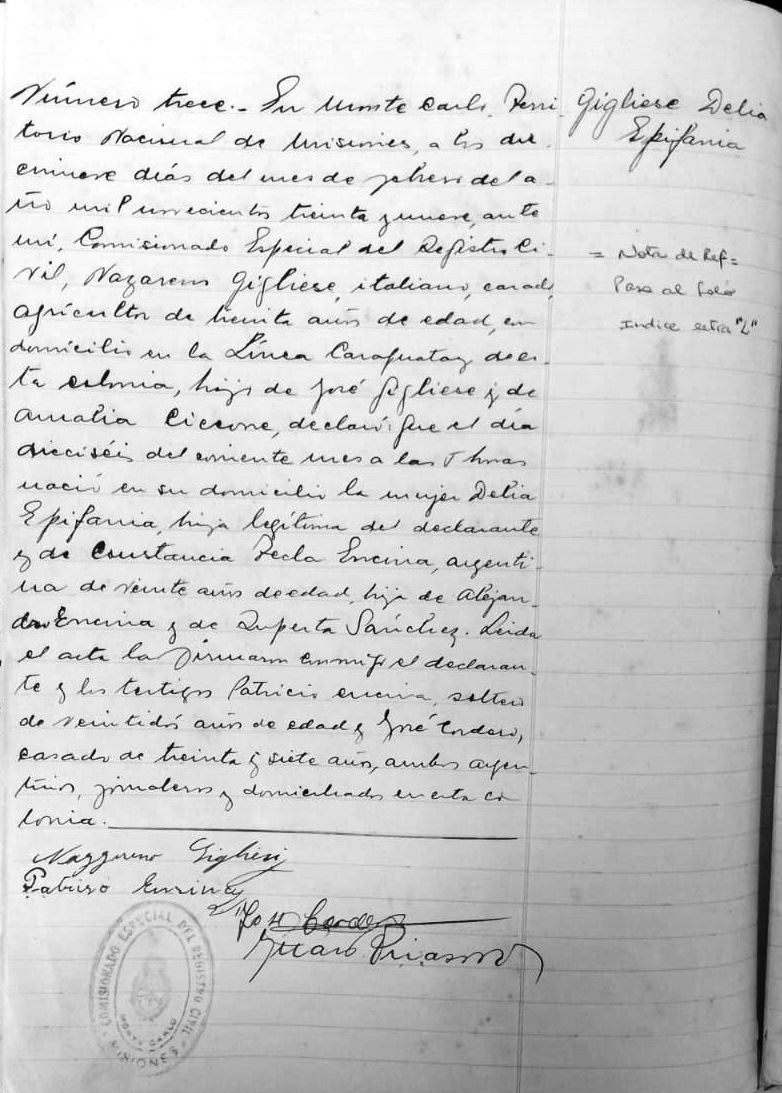 Número trece.- En Monte Carlo, Terri-
torio Nacional de Misiones, a los die-
cinueve dias del mes de febrero del a-
ño mil novecientos treinta y nueve, ante
mi, Comisionado Especial del Registro Ci-
vil, Nazareno Gigliese, italiano, casado,
agricultor de treinta años de edad, con
domicilio en la Línea Caraguatay de es-
ta colonia, hijo de José Gigliese y de
Amalia Ciccone, declaró: que el día
dieciséis del corriente mes a las horas
nació en su domicilio la mujer Delia
Epifania, hija legítima del declarante
y de Constancia Tecla Encina, argenti-
na de veinte años de edad, hija de Alejan-
dro Encina y de Ruperta Sánchez. Leida
el acta la firmaron conmigo el declaran-
te y los testigos Patricio encina, soltero
de veintidós años de edad y José Cordero,
casado de treinta y siete años, ambos argen-
tinos, jornaleros y domiciliados en esta co
lonia.
Gigliese Delia
Epifania
= Nota de Ref =
Pasa al folio
Indice letra "L"
COMISIONADO ESPECIAL DEL REGISTRO CIVIL
MONTE CARLO
MISIONES